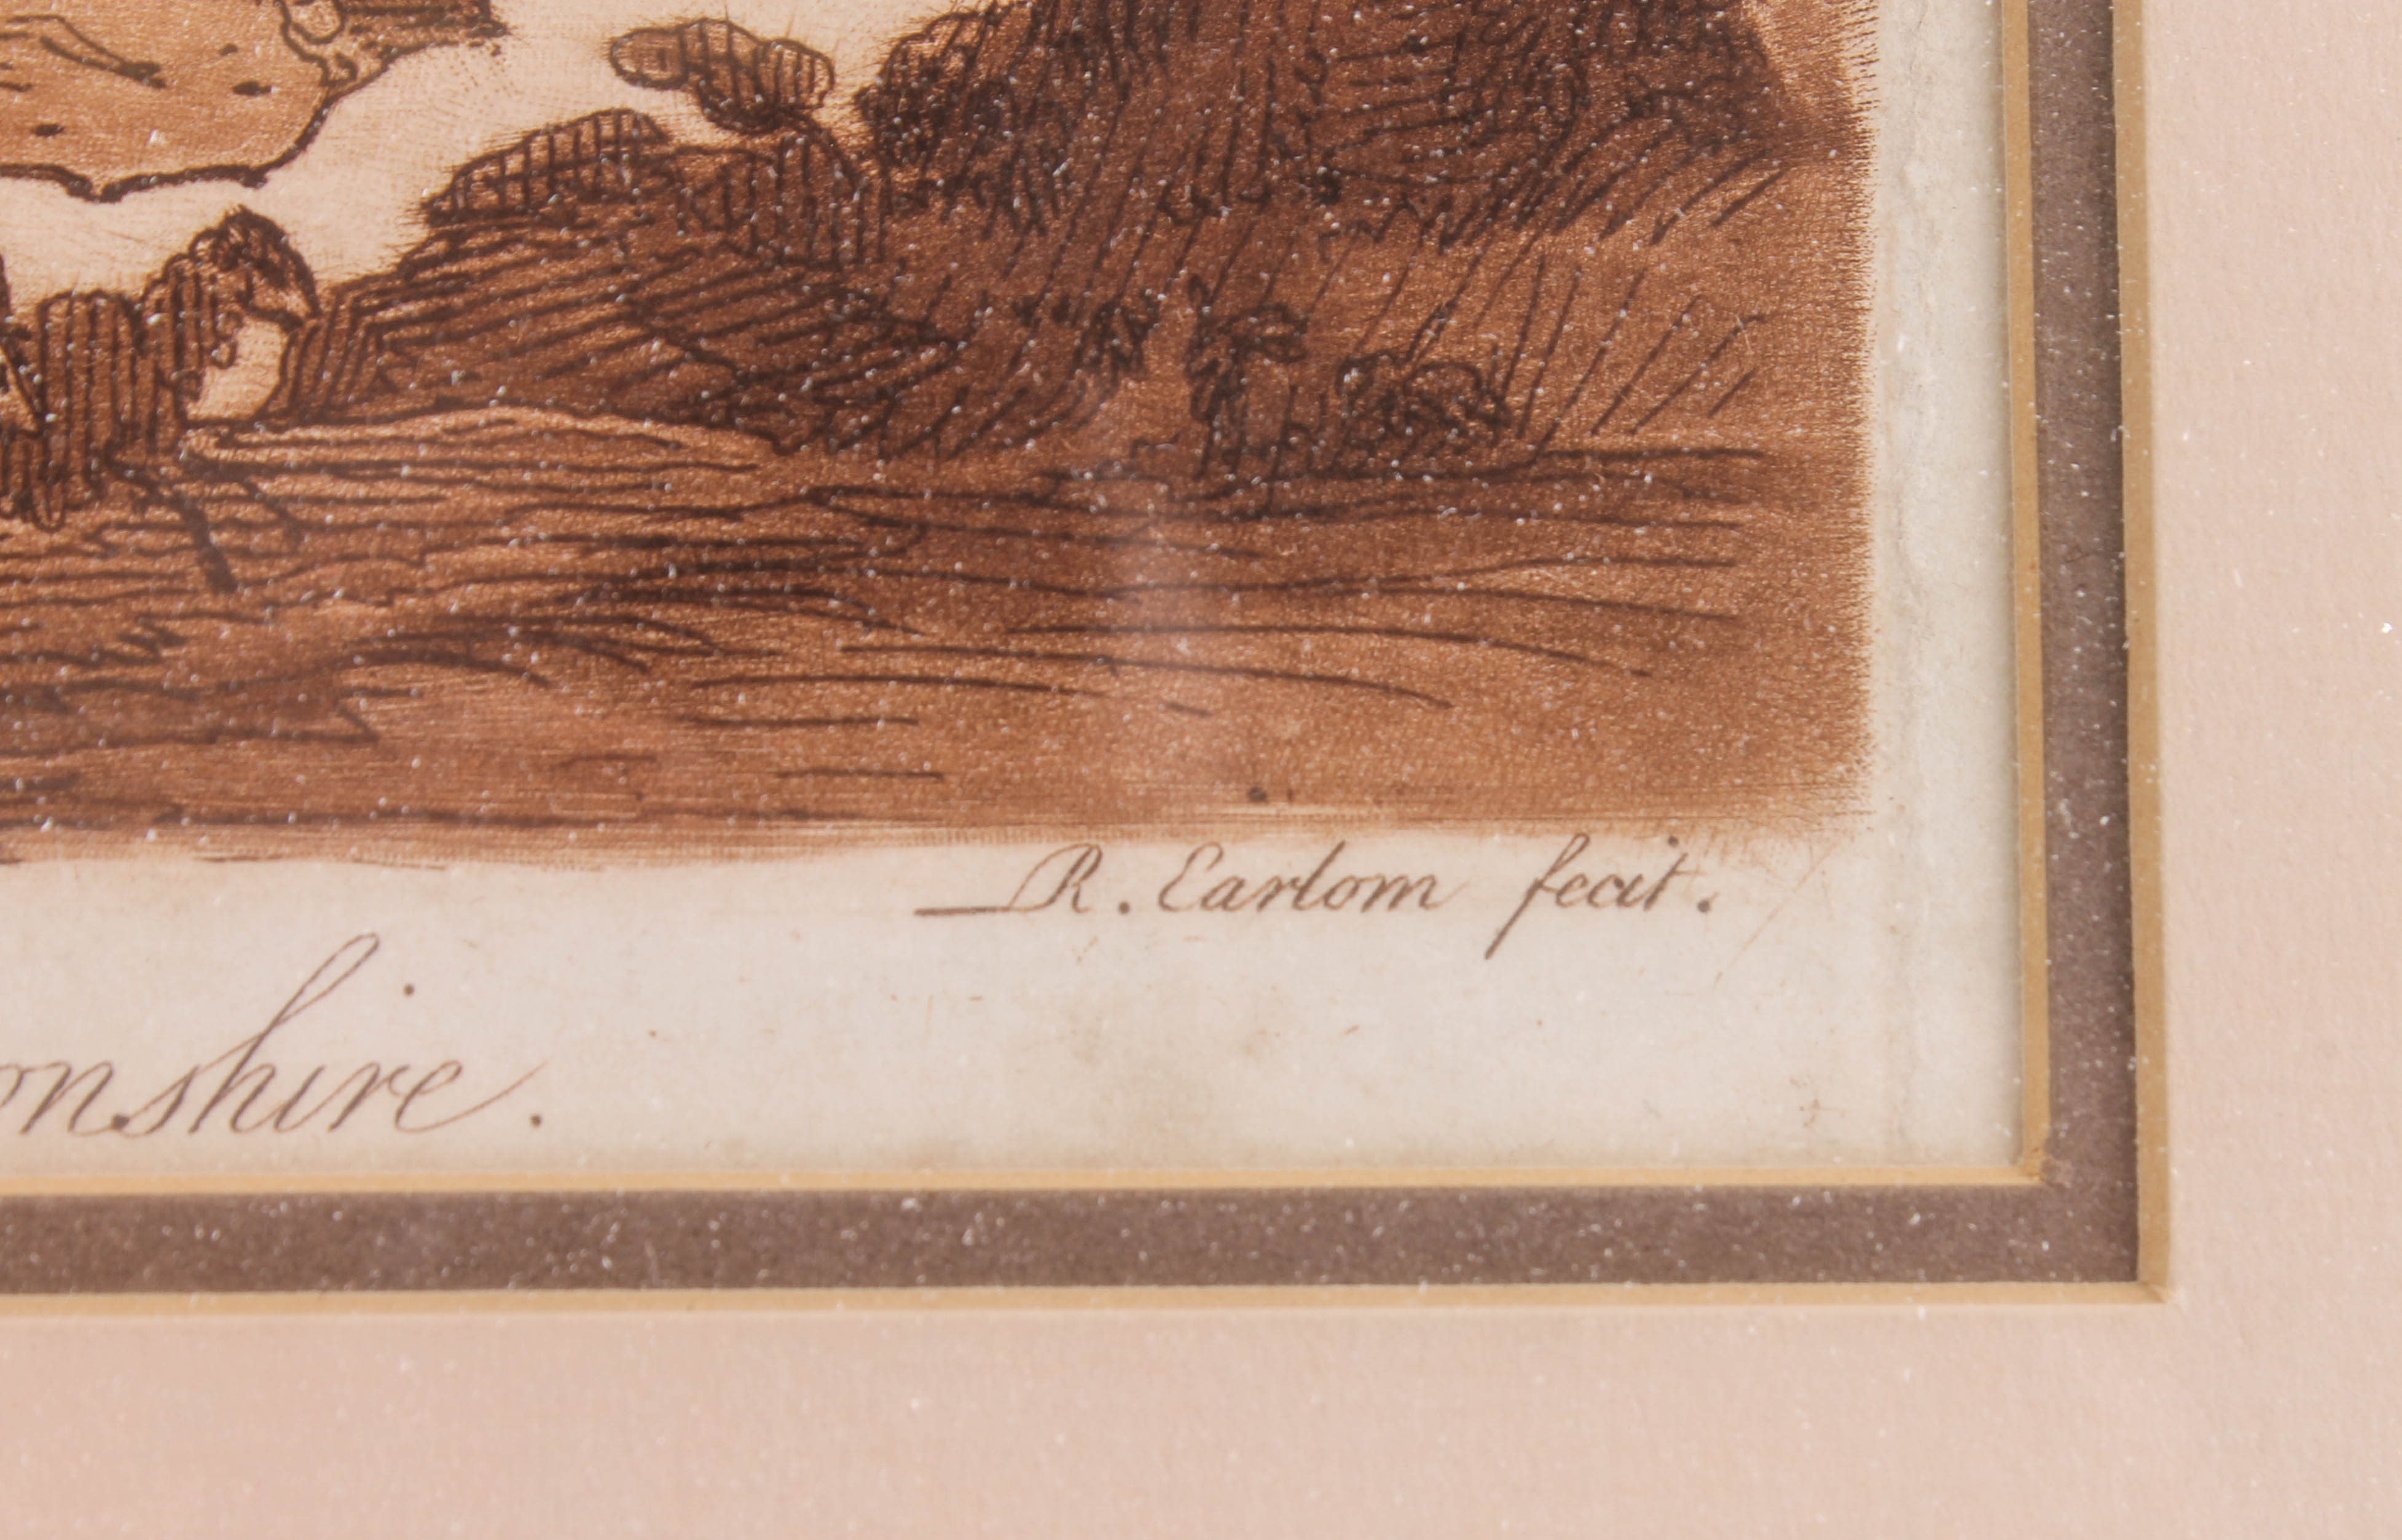 R. Earlom fecit.
onshire.